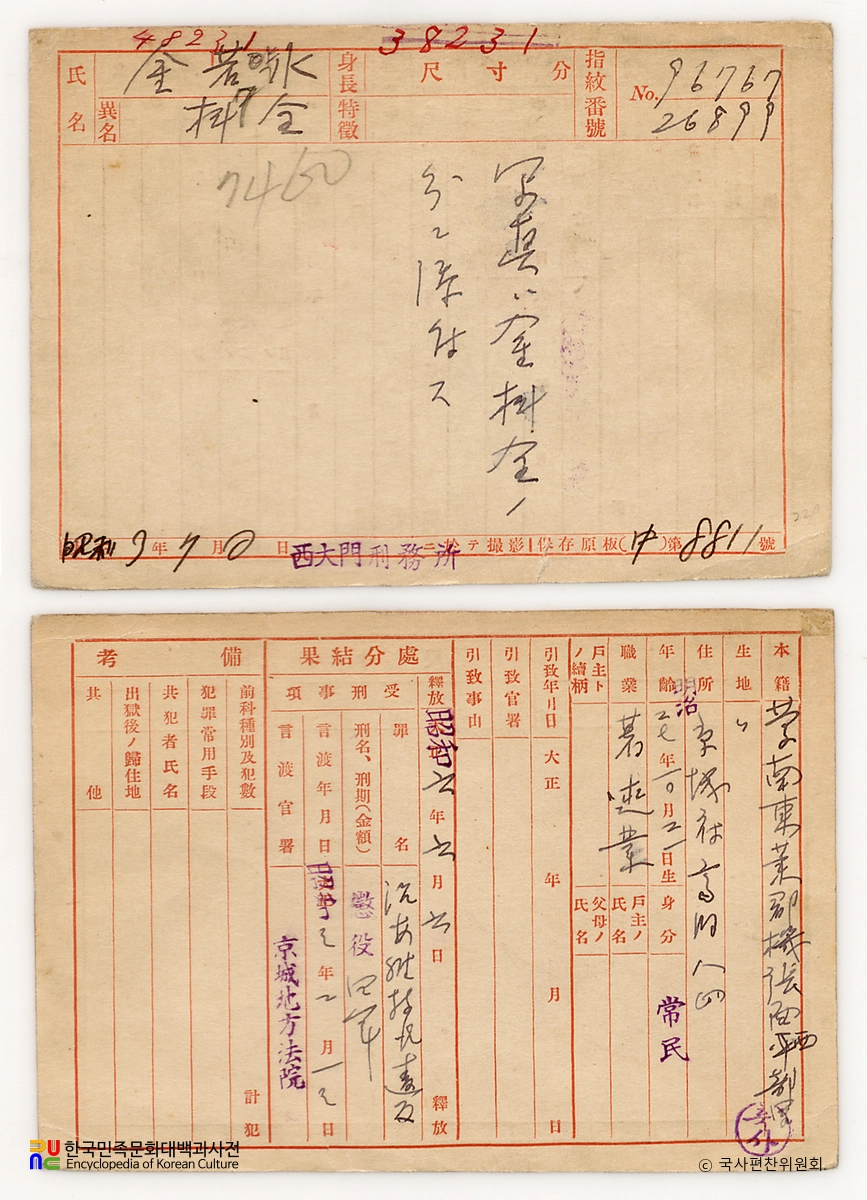 48231
38231
氏名
金若水
異名
枓全
身長
尺 寸 分
特徴
指紋番號
No. 96767
26899
7460
写真ハ金枓全ノ
分ニ添付ス
昭和9年7月 日
西大門刑務所
ニ於テ撮影
保存原板(中)第8811號
本籍
慶南東萊郡機張面
生地
〃
住所
高陽
年齡
明治 年 月 日生
身分
常民
職業
著述業
戸主トノ續柄
戸主ノ氏名
父母ノ氏名
引致年月日
大正 年 月 日
引致官署
引致事由
處分結果
釋放
昭和六年六月六日
釋放
受刑事項
罪名
治安維持法違反
刑名、刑期(金額)
懲役四年
言渡年月日
年二月 日
言渡官署
京城地方法院
備考
前科種別及犯數
計 犯
犯罪常用手段
共犯者氏名
出獄後ノ歸住地
其他
한국민족문화대백과사전
Encyclopedia of Korean Culture
© 국사편찬위원회.